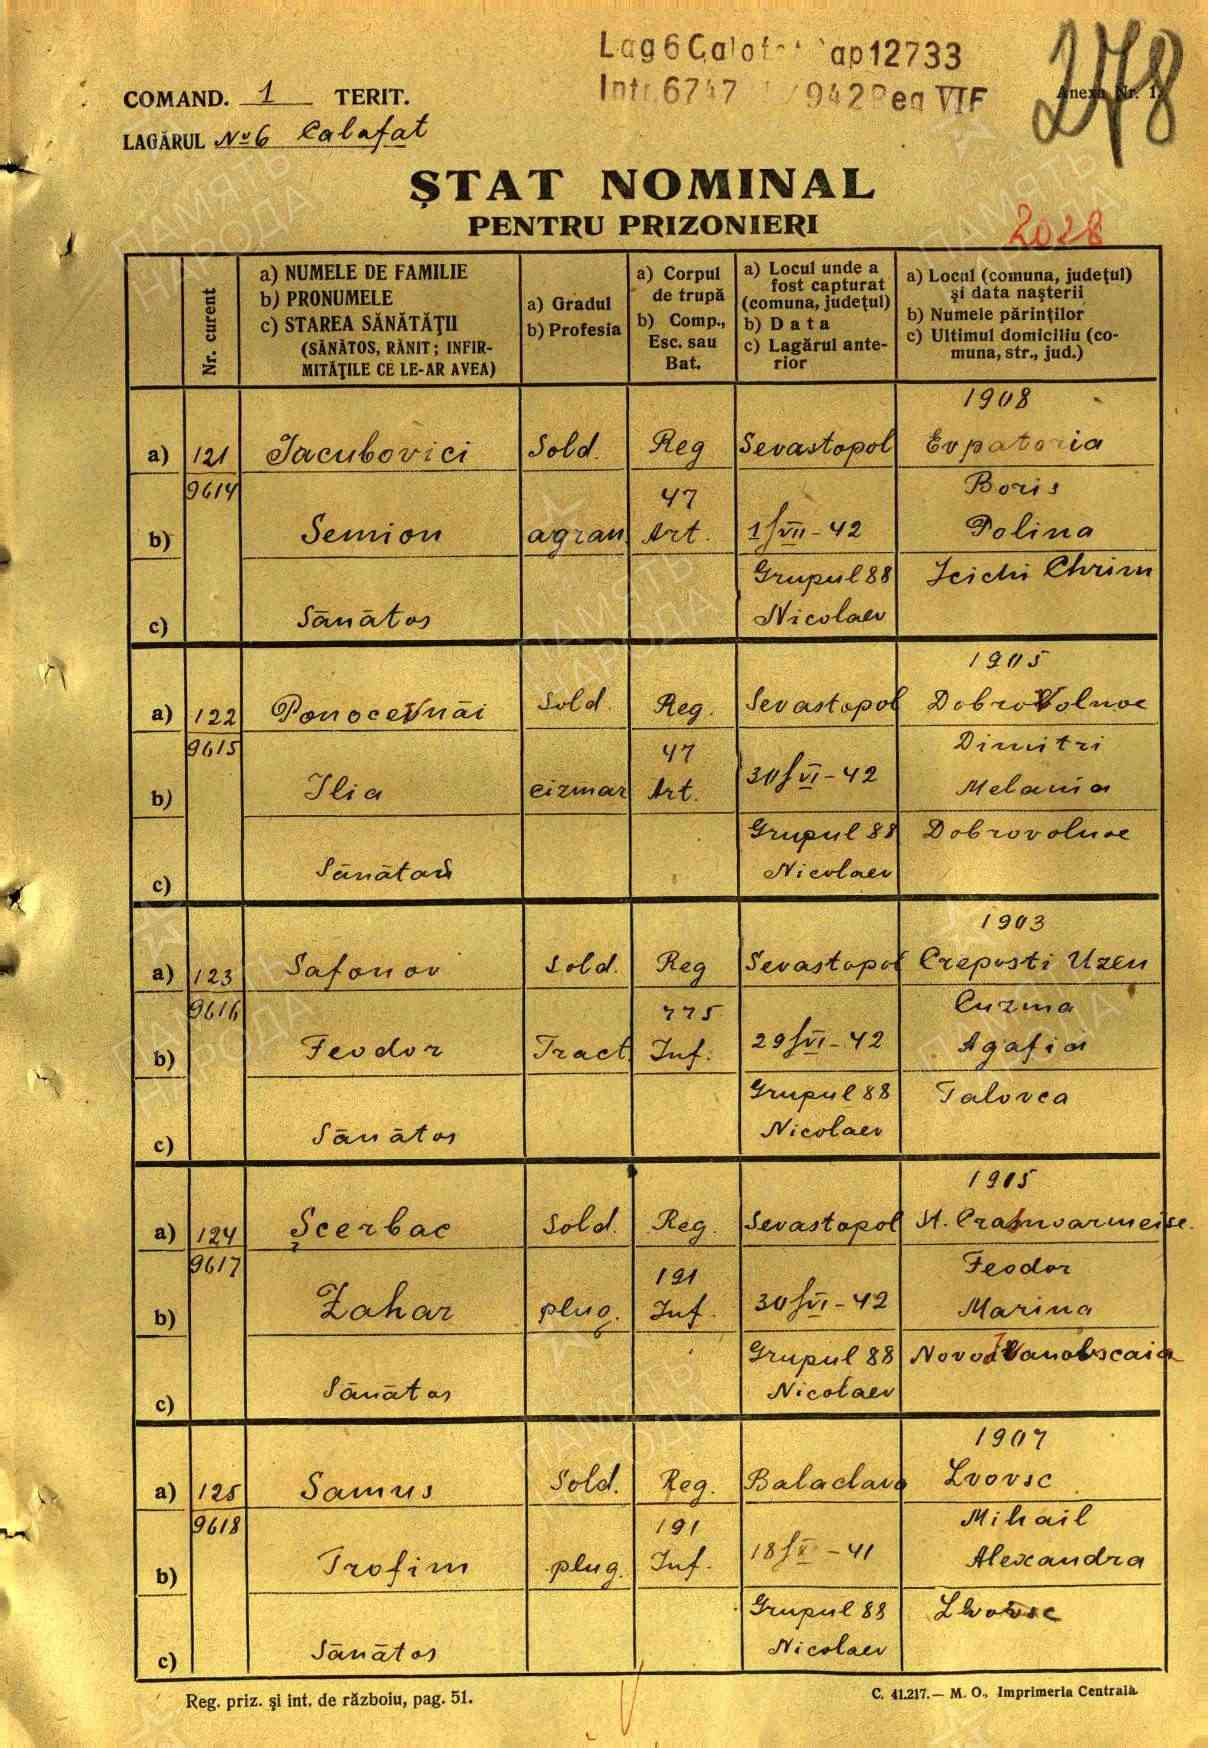 Lag 6 Calafat 12733
Intr. 6747 942 Reg VIF
278
COMAND. 1 TERIT.
Anexa Nr. 1.
LAGĂRUL No 6 Calafat
ȘTAT NOMINAL
PENTRU PRIZONIERI
2028
Nr. curent
a) NUMELE DE FAMILIE
b) PRONUMELE
c) STAREA SĂNĂTĂȚII
(SĂNĂTOS, RĂNIT; INFIR-
MITĂȚILE CE LE-AR AVEA)
a) Gradul
b) Profesia
a) Corpul
de trupă
b) Comp.,
Esc. sau
Bat.
a) Locul unde a
fost capturat
(comuna, județul)
b) Data
c) Lagărul ante-
rior
a) Locul (comuna, județul)
și data nașterii
b) Numele părinților
c) Ultimul domiciliu (co-
muna, str., jud.)
1908
a) 121 Iacubovici Sold. Reg Sevastopol Evpatoria
9614 47 Boris
b) Semion agran. Art. 1/VII-42 Polina
Grupul 88 Icichi Chrim
c) Sănătos Nicolaev
1905
a) 122 Ponocevnăi Sold. Reg. Sevastopol Dobrovolnoe
9615 47 Dimitri
b) Ilia cizmar Art. 30/VI-42 Melania
Grupul 88 Dobrovolnoe
c) Sănătos Nicolaev
1903
a) 123 Safonov Sold. Reg Sevastopol Creposti Uzen
9616 775 Cuzma
b) Feodor Tract. Inf. 29/VI-42 Agafia
Grupul 88 Talovca
c) Sănătos Nicolaev
1905
a) 124 Șcerbac Sold. Reg. Sevastopol St. Crasnoarmeisc.
9617 191 Feodor
b) Zahar plug. Inf. 30/VI-42 Marina
Grupul 88 NovoIvanovscaia
c) Sănătos Nicolaev
1907
a) 125 Samus Sold. Reg. Balaclava Lvovsc
9618 191 Mihail
b) Trofim plug. Inf. 18/X-41 Alexandra
Grupul 88 Lvovsc
c) Sănătos Nicolaev
Reg. priz. și int. de războiu, pag. 51.
C. 41.217.— M. O., Imprimeria Centrală.
ПАМЯТЬ
НАРОДА